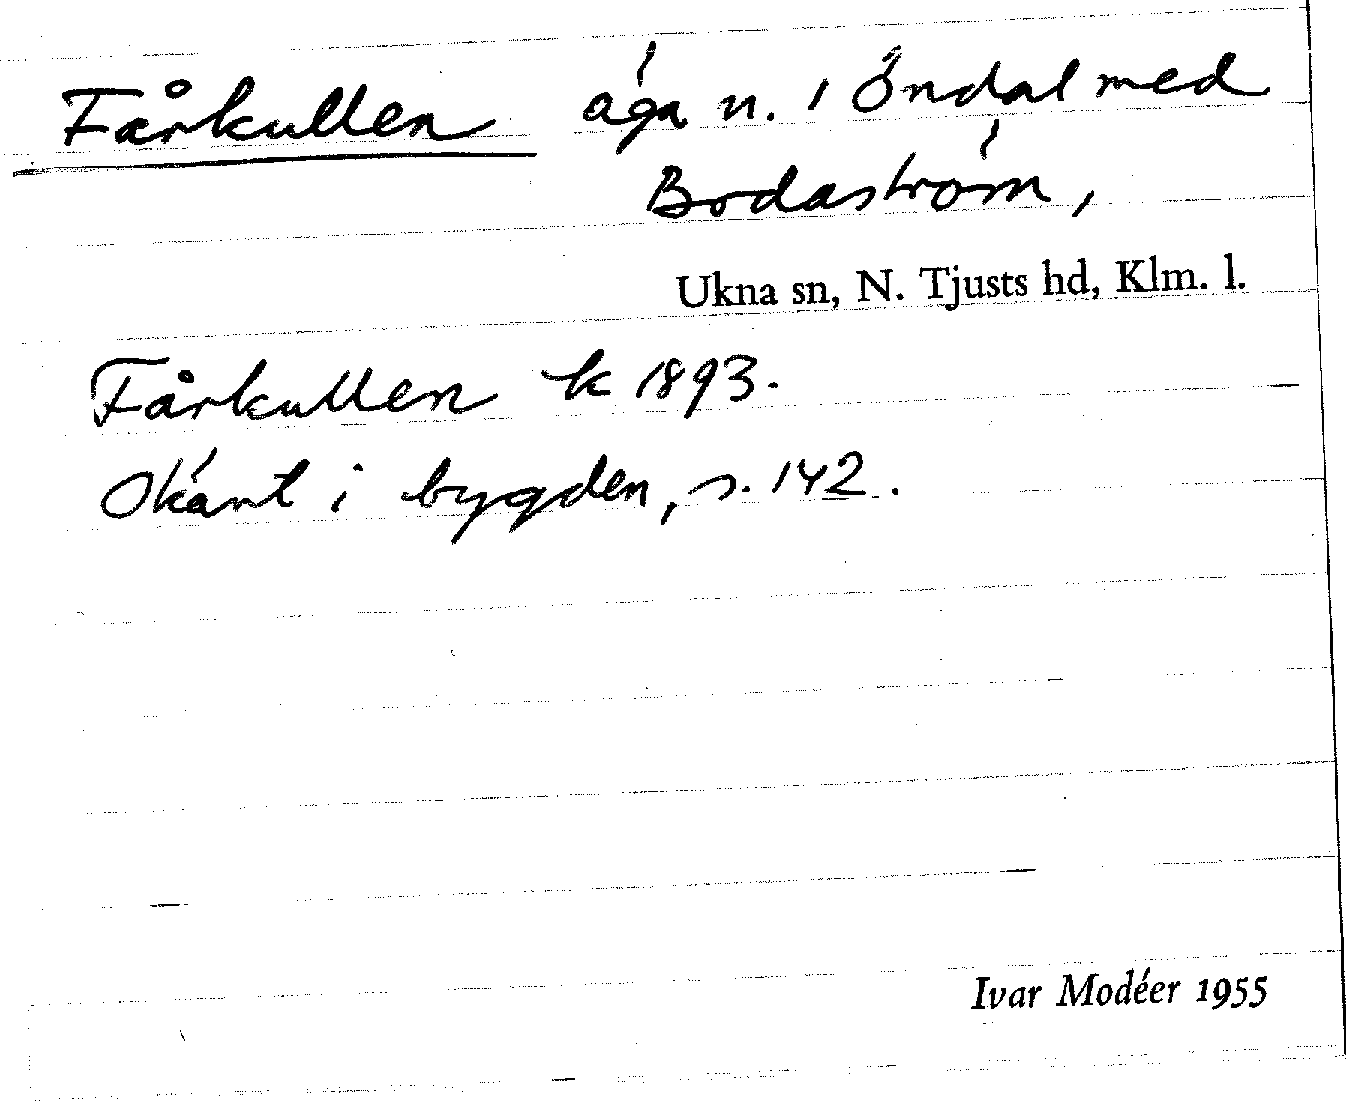 Fårkullen ägn n. i Öndal med
Bodaström,
Ukna sn, N. Tjusts hd, Klm. l.
Fårkullen k 1893.
Okänt i bygden, s. 142.
Ivar Modéer 1955